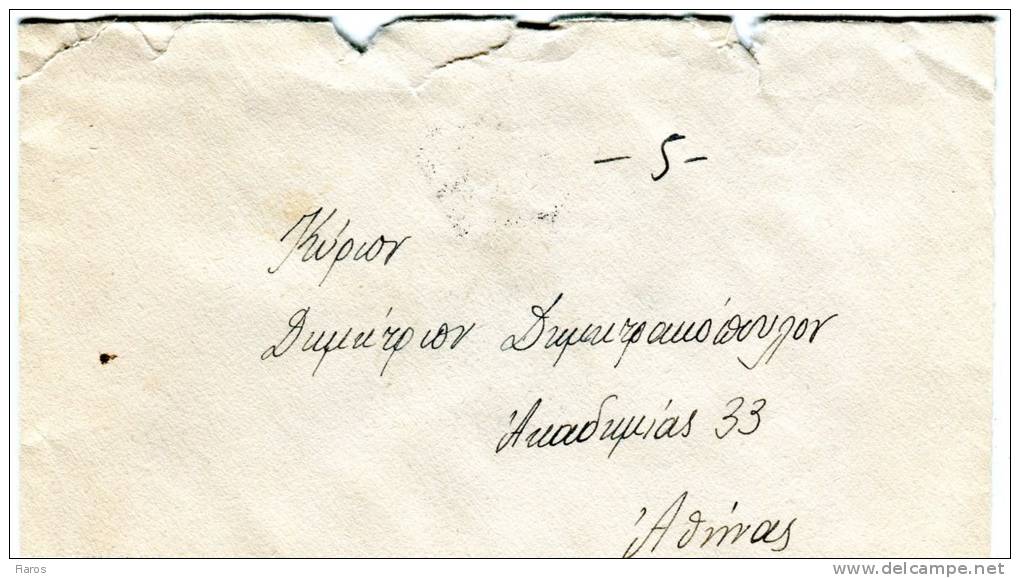 - 5 -
Κύριον
Δημήτριον Δημητρακόπουλον
Ἀκαδημίας 33
Ἀθήνας
Raros
delcampe.net